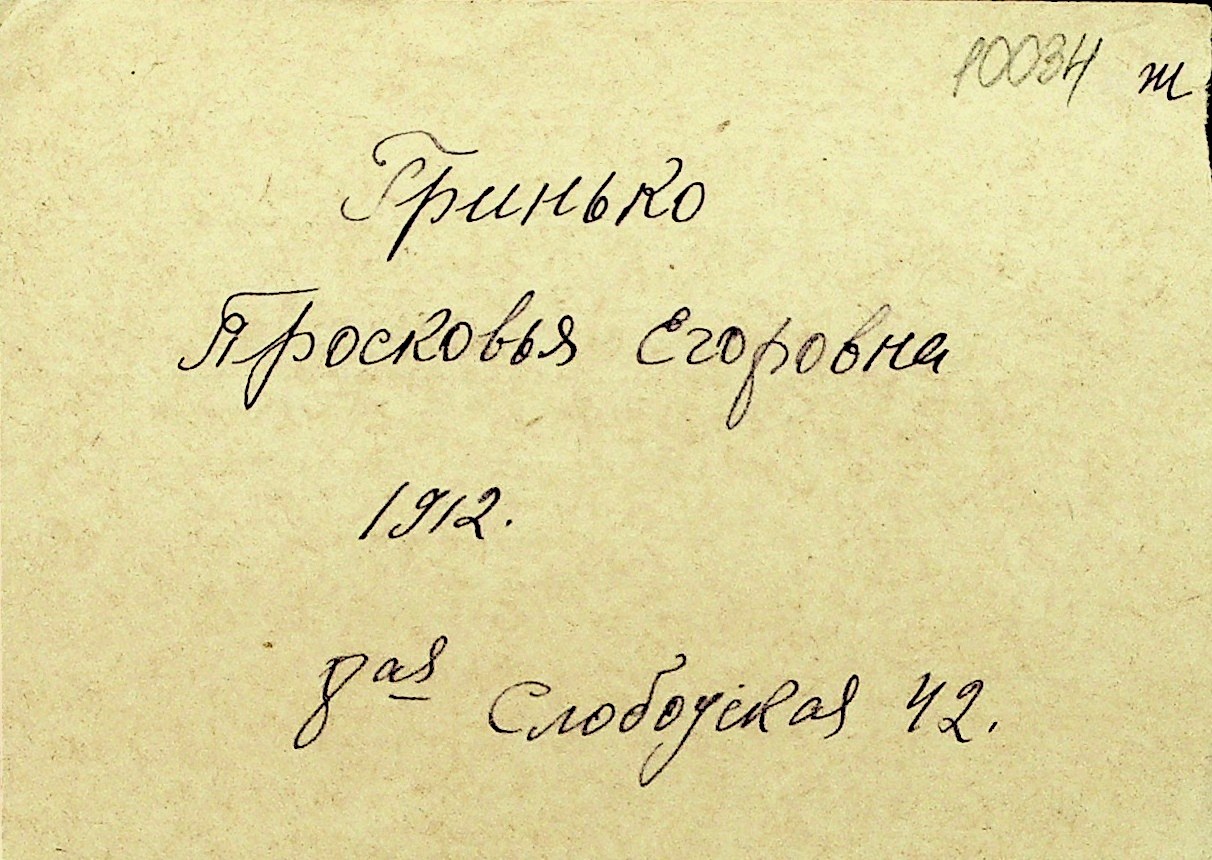 10034 ж
Гринько
Просковья Егоровна
1912.
8ая Слободская 42.